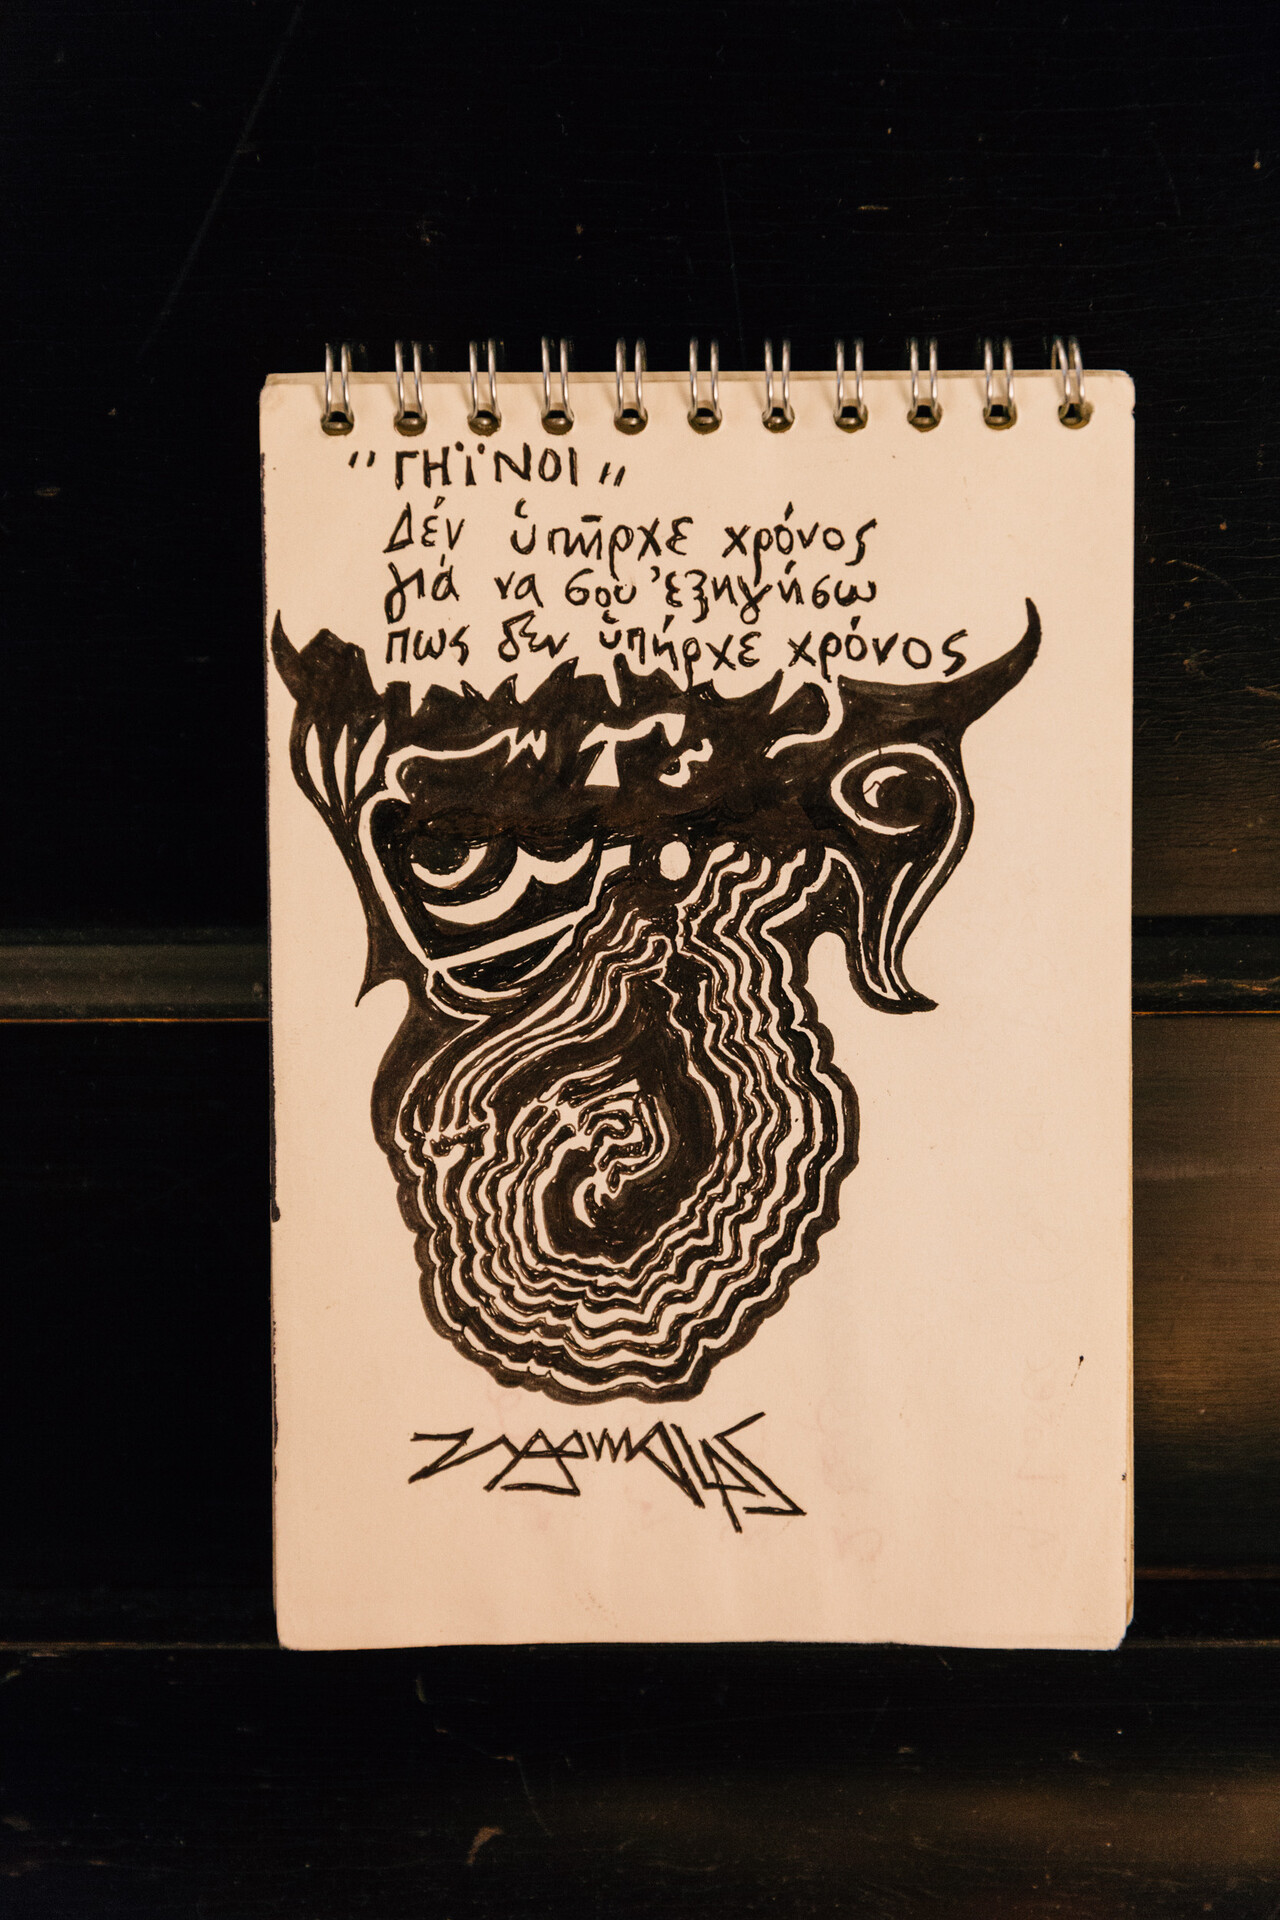 "ΓΗΪΝΟΙ"
Δέν ὑπῆρχε χρόνος
γιά να σου ἐξηγήσω
πως δεν ὑπήρχε χρόνος